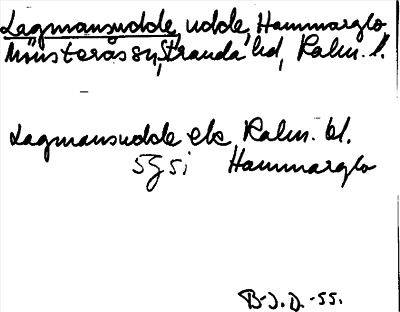 Lagmansudde, udde, Hammarglo
Mönsterås sn, Stranda hd, Kalm. l.
Lagmansudde ek Kalm. bl.
5G 5i Hammarglo
B-J.D.-55.